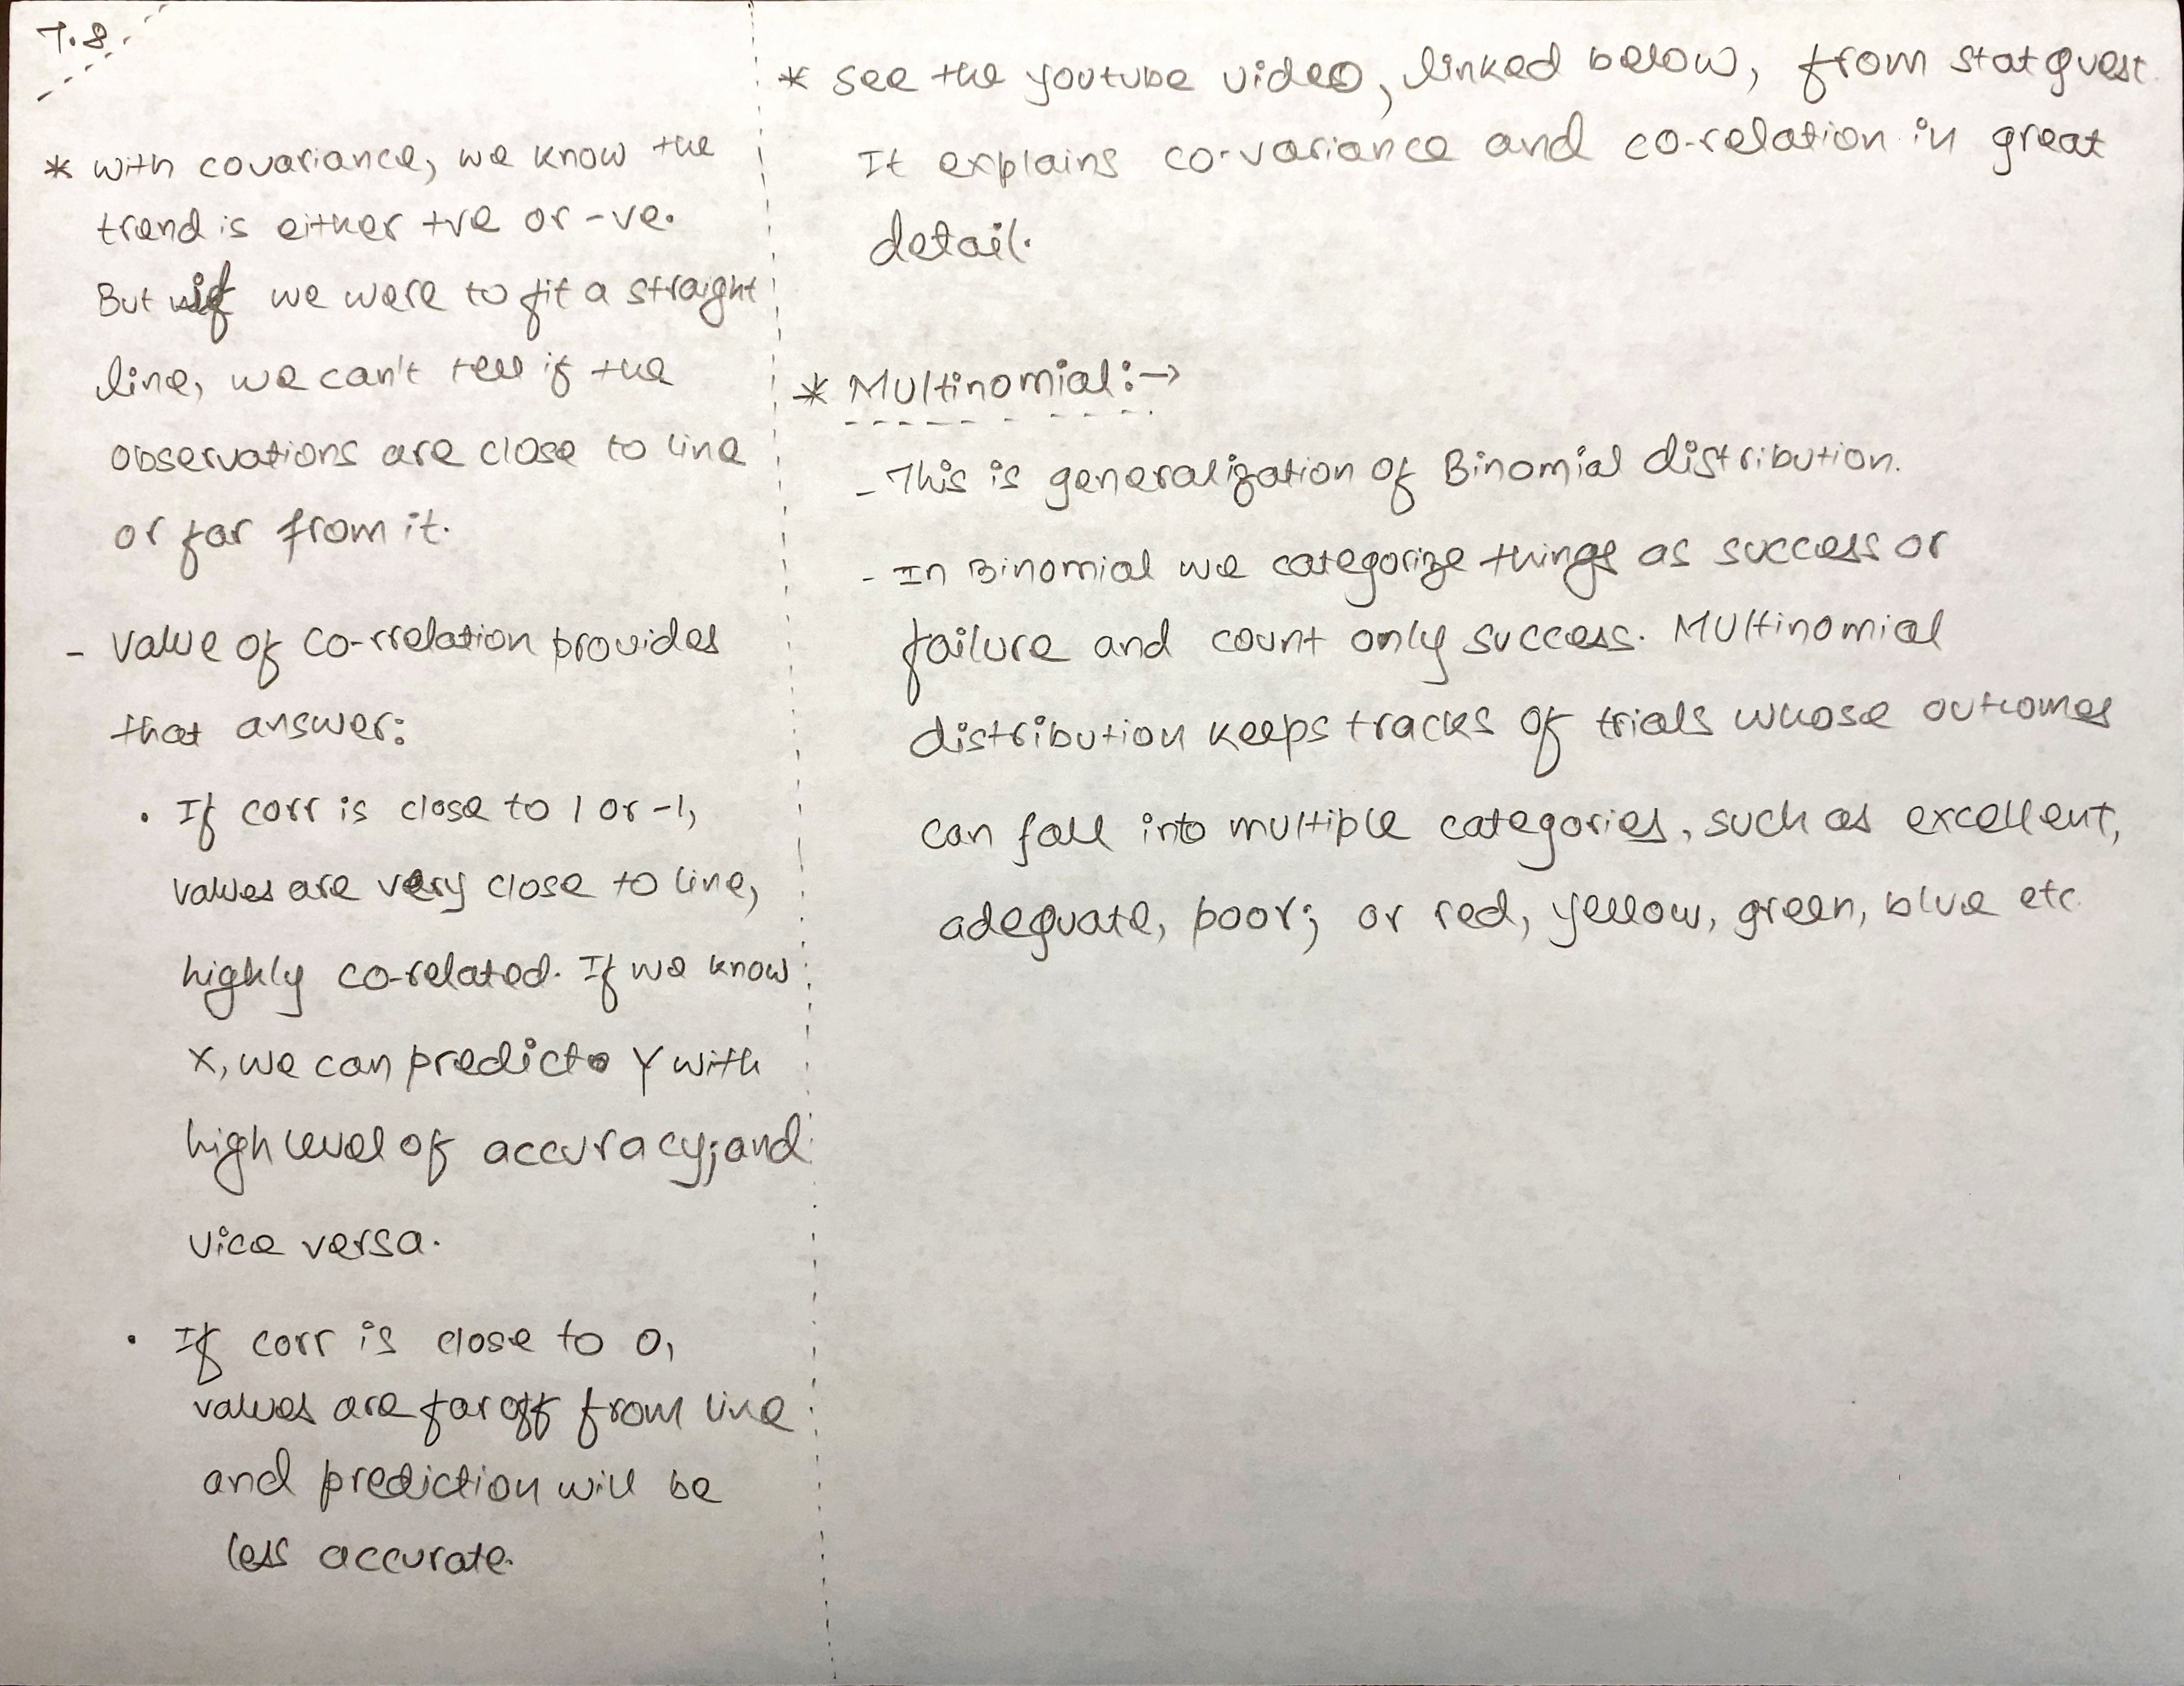 7.8.
* with covariance, we know the
trend is either +ve or -ve.
But if we were to fit a straight
line, we can't tell if the
observations are close to line
or far from it.
- value of co-rrelation provides
that answer:
• If corr is close to 1 or -1,
values are very close to line,
highly co-related. If we know
X, we can predict Y with
high level of accuracy; and
vice versa.
• If corr is close to 0,
values are far off from line
and prediction will be
less accurate.
* see the youtube video, linked below, from statquest.
It explains co-variance and co-relation in great
detail.
* Multinomial:→
- This is generalization of Binomial distribution.
- In Binomial we categorize things as success or
failure and count only success. Multinomial
distribution keeps tracks of trials whose outcomes
can fall into multiple categories, such as excellent,
adequate, poor; or red, yellow, green, blue etc.